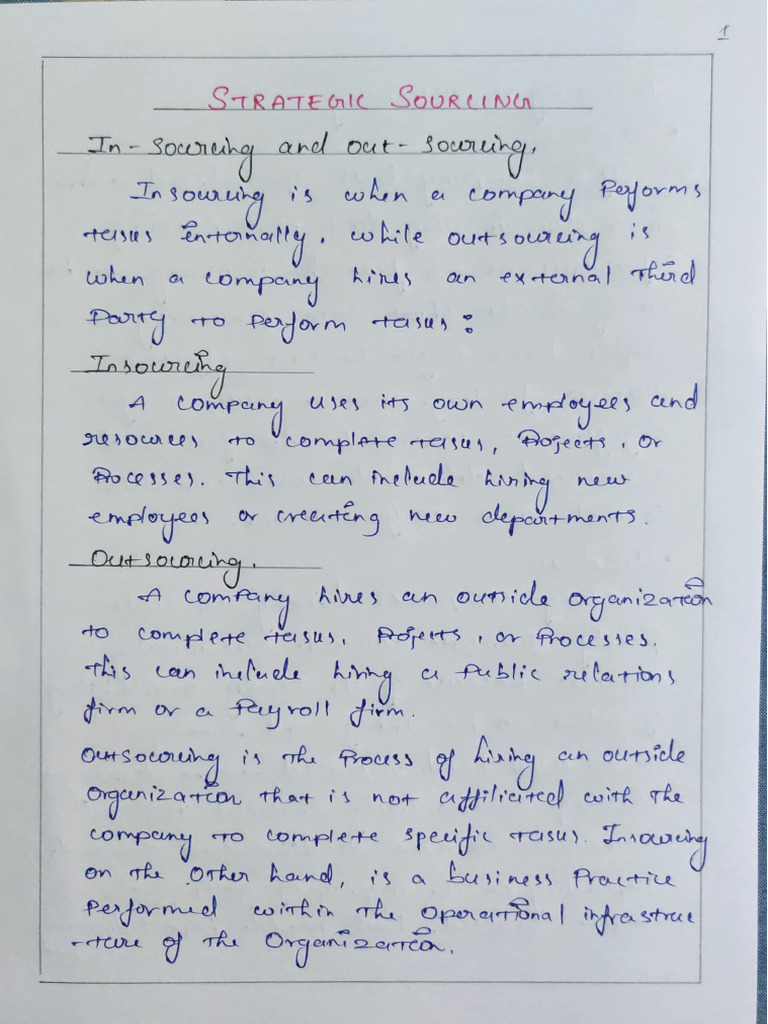 1
STRATEGIC SOURCING
In-sourcing and out-sourcing.
Insourcing is when a company performs
tasks internally. while outsourcing is
when a company hires an external third
party to perform tasks:
Insourcing
A company uses its own employees and
resources to complete tasks, projects, or
processes. This can include hiring new
employees or creating new departments.
Outsourcing.
A company hires an outside organization
to complete tasks, projects, or processes.
This can include hiring a public relations
firm or a payroll firm.
Outsourcing is the process of hiring an outside
organization that is not affiliated with the
company to complete specific tasks. Insourcing
on the other hand, is a business practice
performed within the operational infrastruc
-ture of the organization.